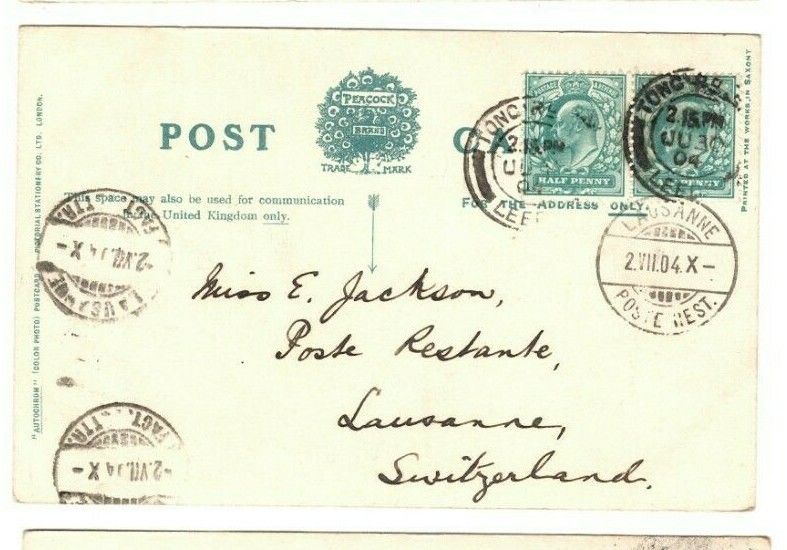 POST CARD
PEACOCK
BRAND
TRADE MARK
This space may also be used for communication
in the United Kingdom only.
FOR THE ADDRESS ONLY.
"AUTOCHROM" (COLOR PHOTO) POSTCARD PICTORIAL STATIONERY CO. LTD. LONDON.
PRINTED AT THE WORKS, IN SAXONY
POSTAGE REVENUE
HALF PENNY
2.15 PM
JU 30
04
LEEDS
2.15 PM
JU 30
04
LEEDS
PENNY
LAUSANNE
2.VII.04.X-
POSTE REST.
Miss E. Jackson,
Poste Restante,
Lausanne,
Switzerland.
LAUSANNE
-2.VII.04 X-
FACT. LTTR.
-2.VII.04 X-
FACT. LTTR.